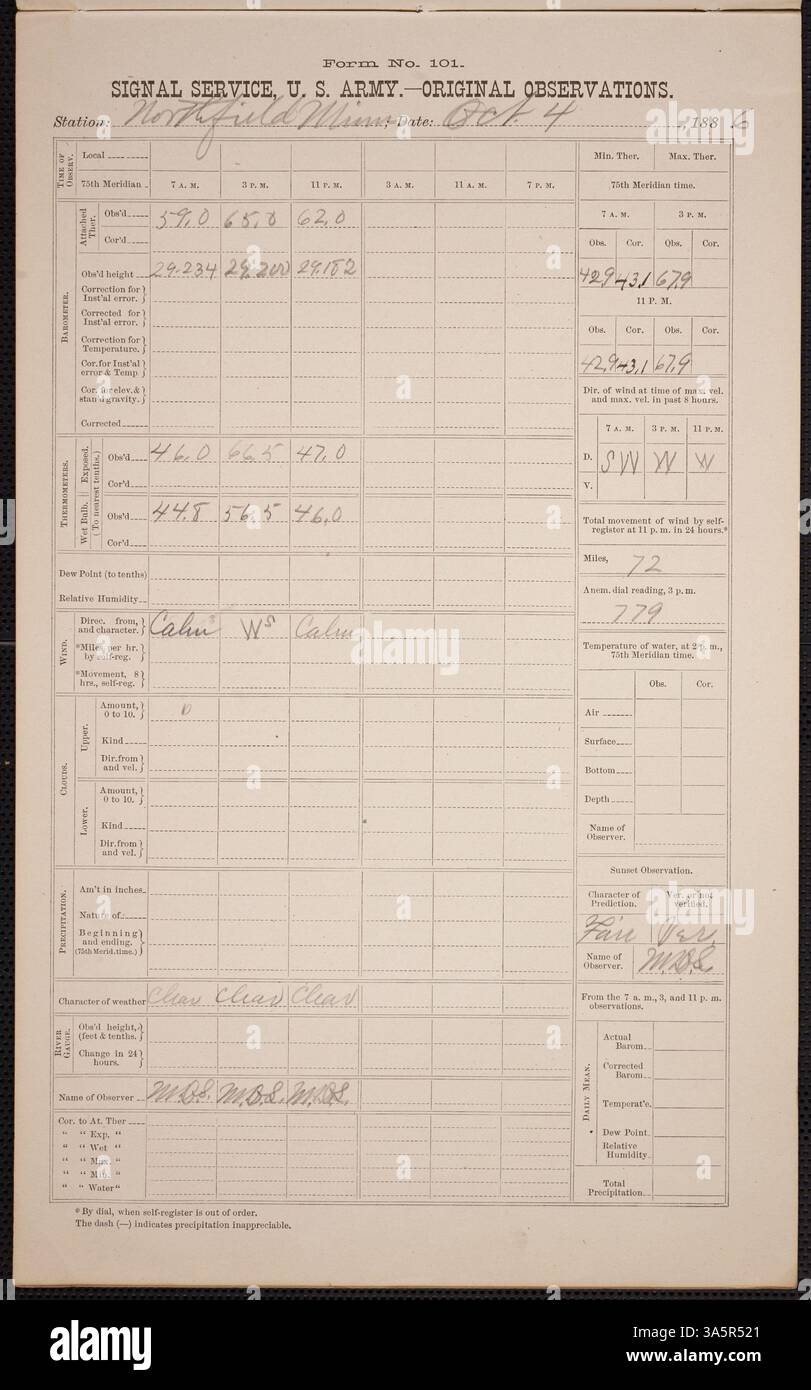 Form No. 101.
SIGNAL SERVICE, U. S. ARMY.—ORIGINAL OBSERVATIONS.
Station: Northfield Minn; Date: Oct 4, 1886
TIME OF OBSERV.
Local
75th Meridian 7 A. M. 3 P. M. 11 P. M. 3 A. M. 11 A. M. 7 P. M.
BAROMETER.
Attached Ther.
Obs'd 59.0 65.0 62.0
Cor'd
Obs'd height 29.234 29.200 29.182
Correction for Inst'al error.
Corrected for Inst'al error.
Correction for Temperature.
Cor. for Inst'al error & Temp
Cor. for elev. & stan'd gravity.
Corrected
THERMOMETERS.
(To nearest tenths.)
Exposed.
Obs'd 46.0 66.5 47.0
Cor'd
Wet Bulb.
Obs'd 44.8 56.5 46.0
Cor'd
Dew Point (to tenths)
Relative Humidity
WIND.
Direc. from, and character. Calm W Calm
*Miles per hr. by self-reg.
*Movement, 8 hrs., self-reg.
CLOUDS.
Upper.
Amount, 0 to 10. 0
Kind
Dir. from and vel.
Lower.
Amount, 0 to 10.
Kind
Dir. from and vel.
PRECIPITATION.
Am't in inches
Nature of
Beginning and ending. (75th Merid. time.)
Character of weather Clear Clear Clear
RIVER GAUGE.
Obs'd height, (feet & tenths.)
Change in 24 hours.
Name of Observer M.D.S. M.D.S. M.D.S.
Cor. to At. Ther
" " Exp. "
" " Wet "
" " Max. "
" " Min. "
" " Water "
* By dial, when self-register is out of order.
The dash (—) indicates precipitation inappreciable.
Min. Ther. Max. Ther.
75th Meridian time.
7 A. M. 3 P. M.
Obs. Cor. Obs. Cor.
42.9 43.1 67.9
11 P. M.
Obs. Cor. Obs. Cor.
42.9 43.1 67.9
Dir. of wind at time of max. vel. and max. vel. in past 8 hours.
7 A. M. 3 P. M. 11 P. M.
D. SW W W
V.
Total movement of wind by self-register at 11 p. m. in 24 hours.*
Miles, 72
Anem. dial reading, 3 p. m.
779
Temperature of water, at 2 p. m., 75th Meridian time.
Obs. Cor.
Air
Surface
Bottom
Depth
Name of Observer.
Sunset Observation.
Character of Prediction. Ver. or not verified.
Fair Ver.
Name of Observer. M.D.S.
From the 7 a. m., 3, and 11 p. m. observations.
DAILY MEAN.
Actual Barom.
Corrected Barom.
Temperat'e.
Dew Point
Relative Humidity
Total Precipitation
alamy
Image ID: 3A5R521
www.alamy.com